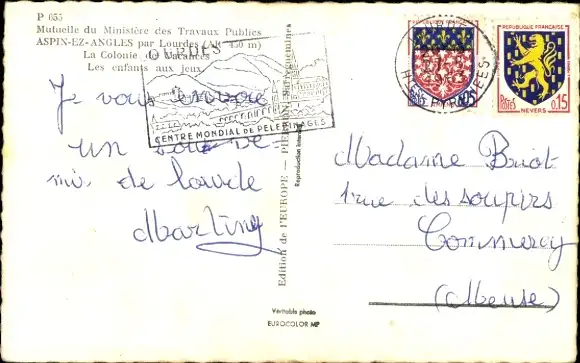 P 055
Mutuelle du Ministère des Travaux Publics
ASPIN-EZ-ANGLES par Lourdes (Alt. 450 m)
La Colonie de Vacances
Les enfants aux jeux
LOURDES
CENTRE MONDIAL DE PELERINAGES
Je vous envoie
un
de lourde
Martiny
Edition de l'EUROPE — PIERRON, Sarreguemines
Reproduction interdite
Véritable photo
EUROCOLOR MP
HTES PYRENEES
REPUBLIQUE FRANÇAISE
POSTES
0,05
POSTES
0,15
NEVERS
Madame Briot
1 rue des soupirs
Commercy
(Meuse)